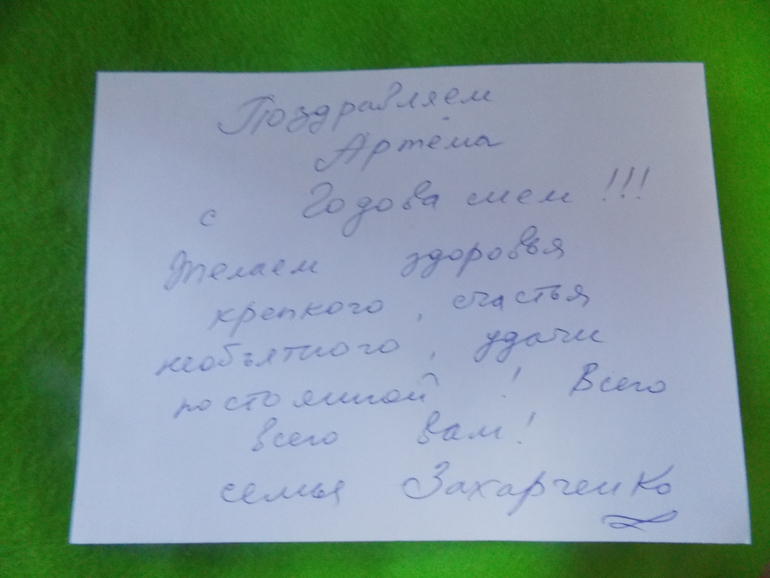 Поздравляем
Артёма
с Годовасием !!!
Желаем здоровья
крепкого, счастья
необъятного, удачи
постоянной! Всего
всего вам!
семья Захарченко